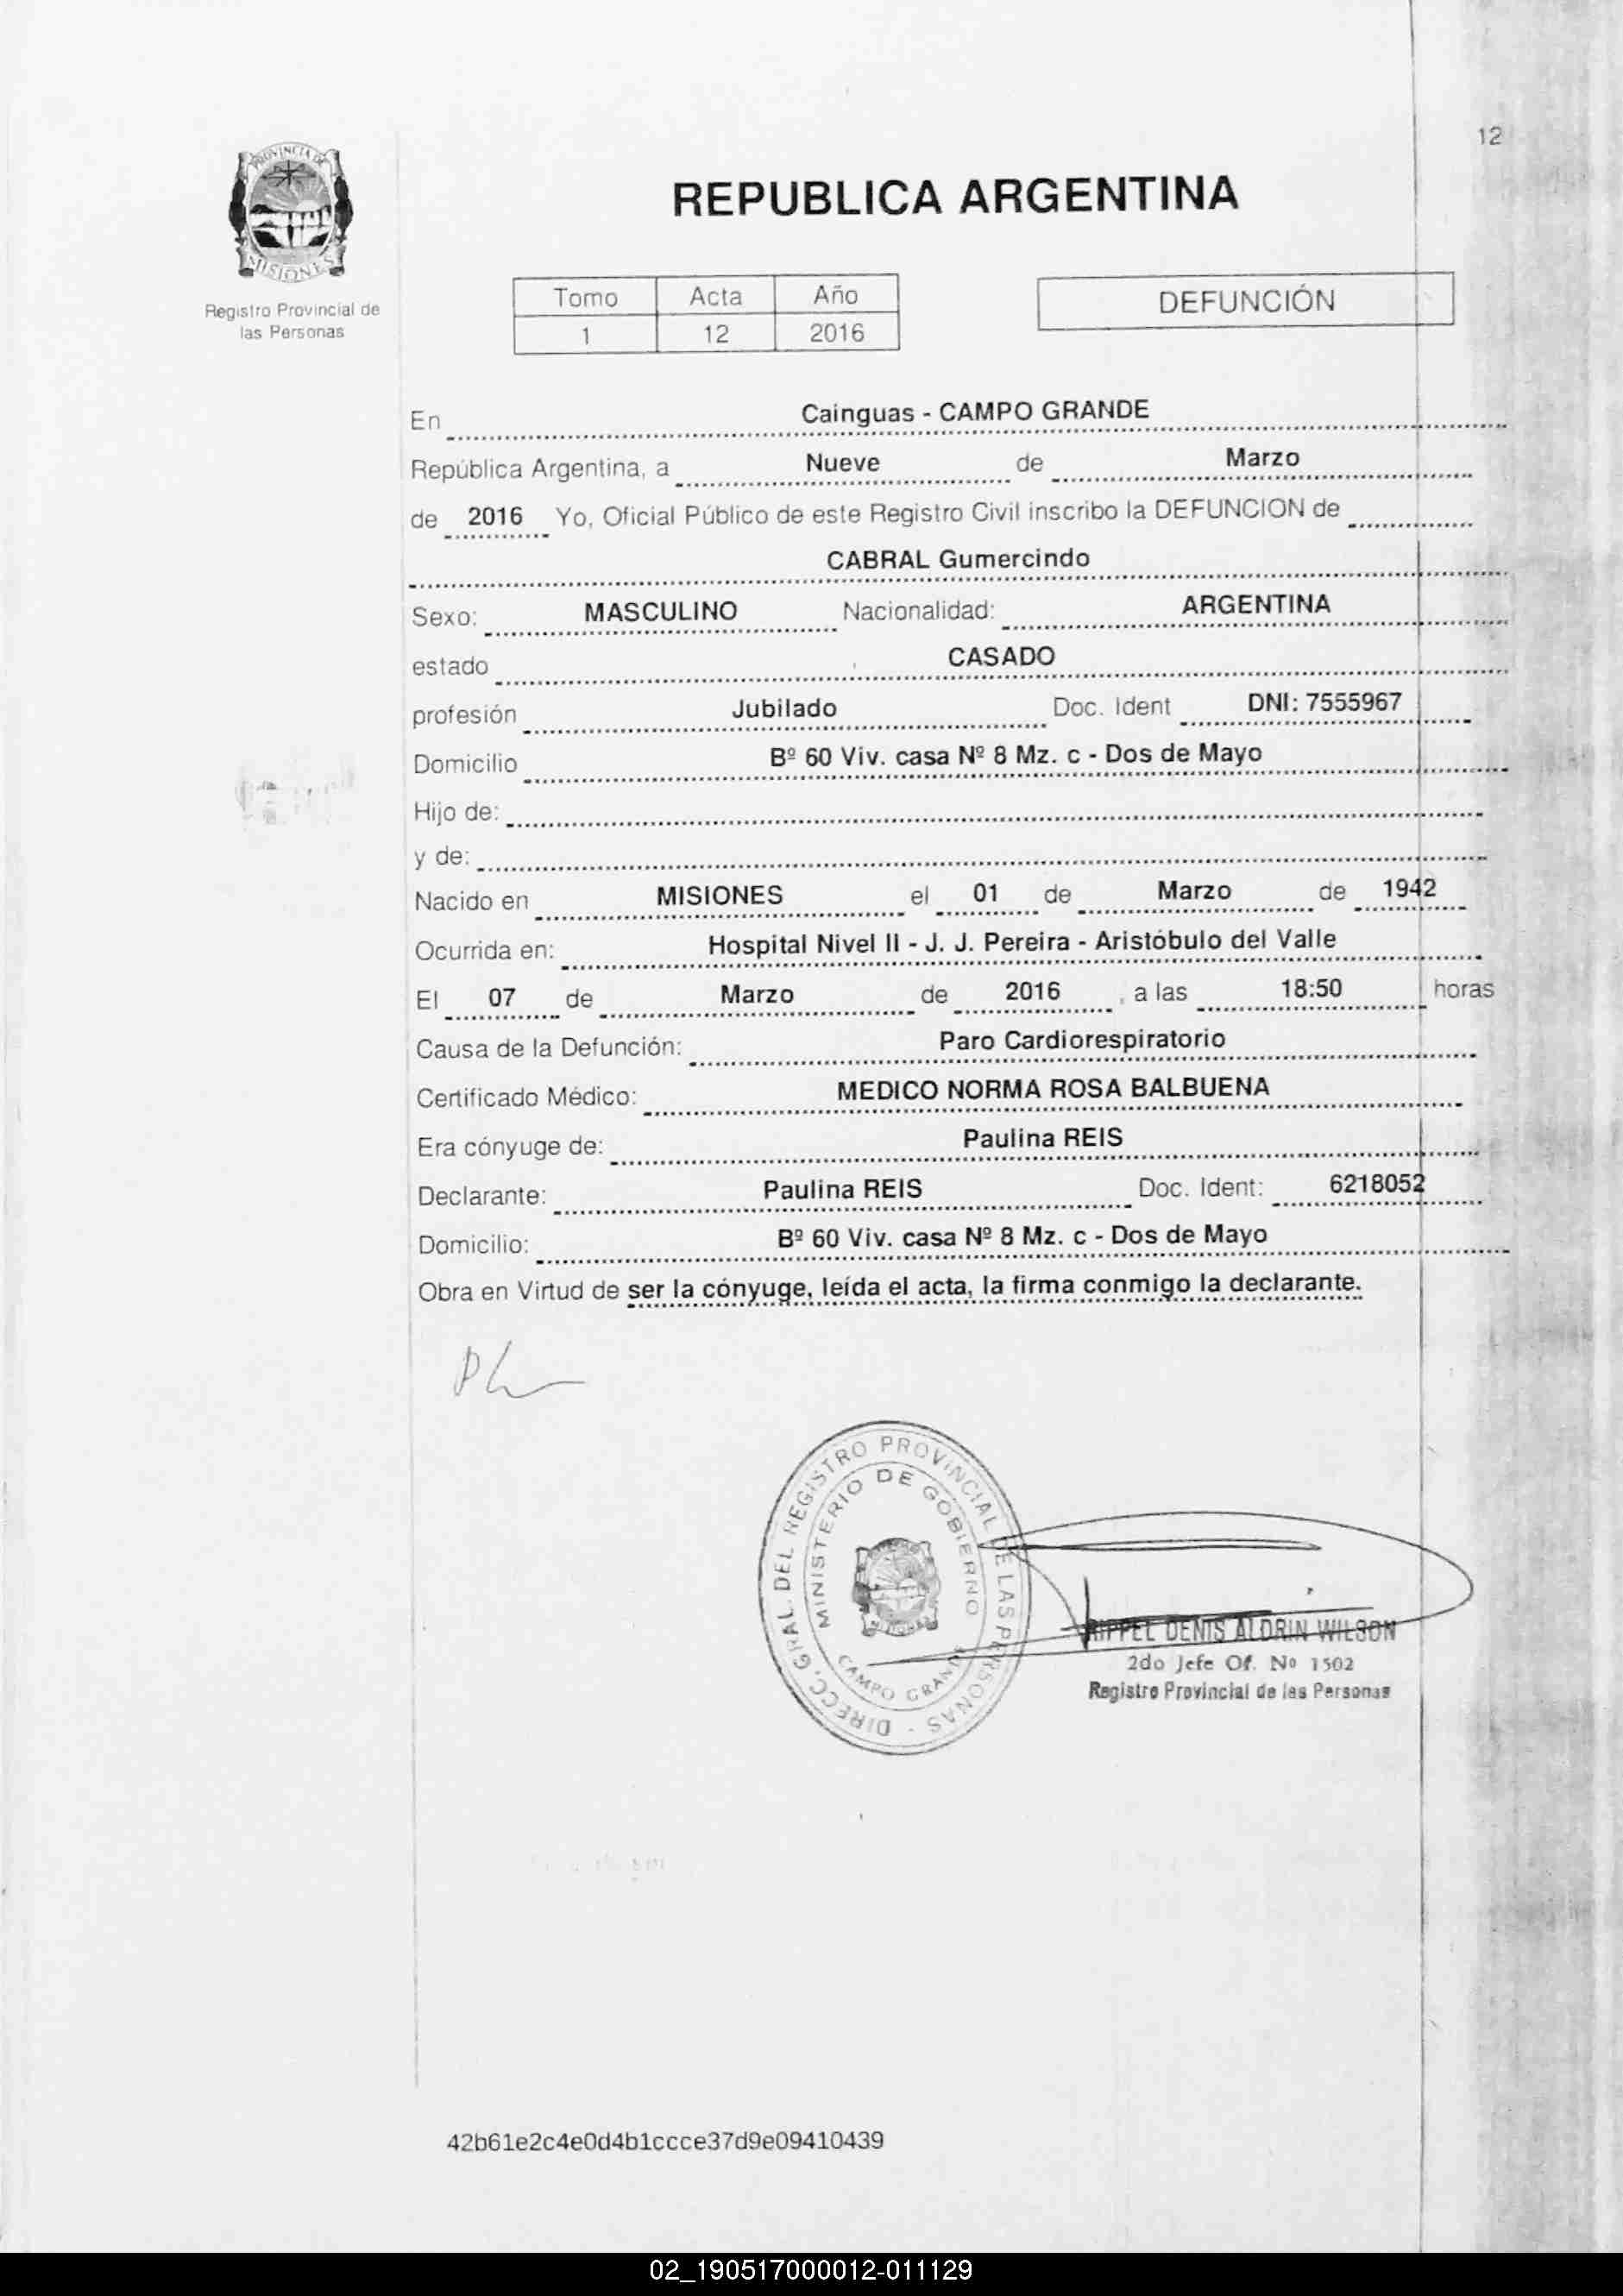 12
PROVINCIA DE
MISIONES
Registro Provincial de
las Personas
REPUBLICA ARGENTINA
Tomo Acta Año
1 12 2016
DEFUNCIÓN
En Cainguas - CAMPO GRANDE
República Argentina, a Nueve de Marzo
de 2016 Yo, Oficial Público de este Registro Civil inscribo la DEFUNCION de
CABRAL Gumercindo
Sexo: MASCULINO Nacionalidad: ARGENTINA
estado CASADO
profesión Jubilado Doc. Ident DNI: 7555967
Domicilio Bº 60 Viv. casa Nº 8 Mz. c - Dos de Mayo
Hijo de:
y de:
Nacido en MISIONES el 01 de Marzo de 1942
Ocurrida en: Hospital Nivel II - J. J. Pereira - Aristóbulo del Valle
El 07 de Marzo de 2016, a las 18:50 horas
Causa de la Defunción: Paro Cardiorespiratorio
Certificado Médico: MEDICO NORMA ROSA BALBUENA
Era cónyuge de: Paulina REIS
Declarante: Paulina REIS Doc. Ident: 6218052
Domicilio: Bº 60 Viv. casa Nº 8 Mz. c - Dos de Mayo
Obra en Virtud de ser la cónyuge, leída el acta, la firma conmigo la declarante.
DIRECC. GRAL. DEL REGISTRO PROVINCIAL DE LAS PERSONAS -
MINISTERIO DE GOBIERNO
CAMPO GRANDE
RIPPEL DENIS ALDRIN WILSON
2do Jefe Of. Nº 1502
Registro Provincial de las Personas
42b61e2c4e0d4b1ccce37d9e09410439
02_190517000012-011129